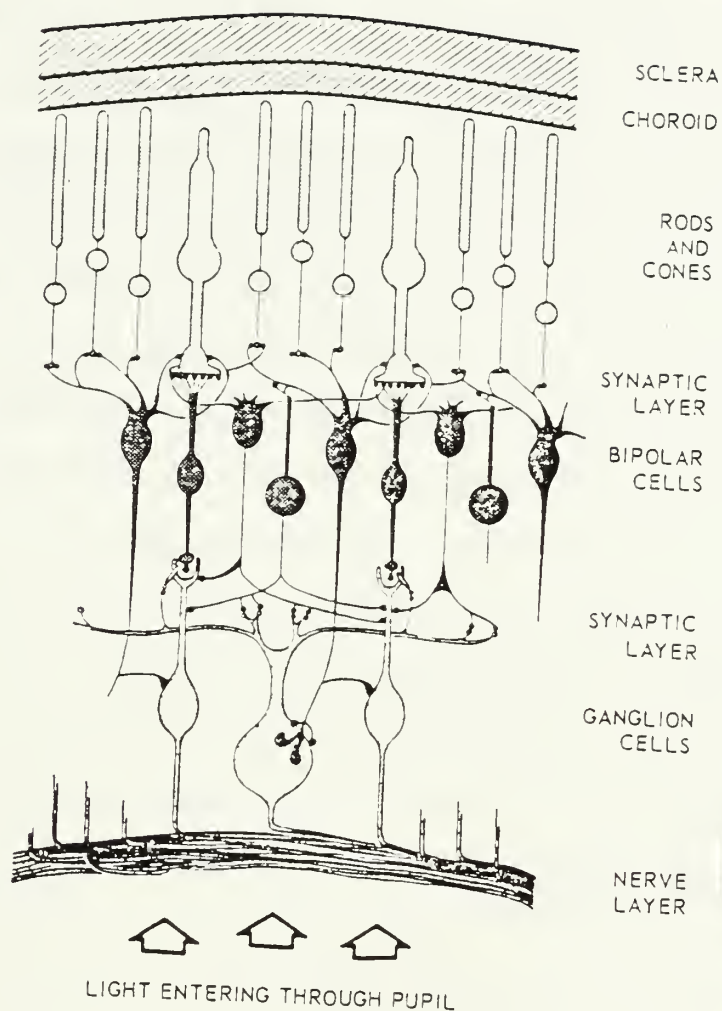 SCLERA
CHOROID
RODS
AND
CONES
SYNAPTIC
LAYER
BIPOLAR
CELLS
SYNAPTIC
LAYER
GANGLION
CELLS
NERVE
LAYER
LIGHT ENTERING THROUGH PUPIL